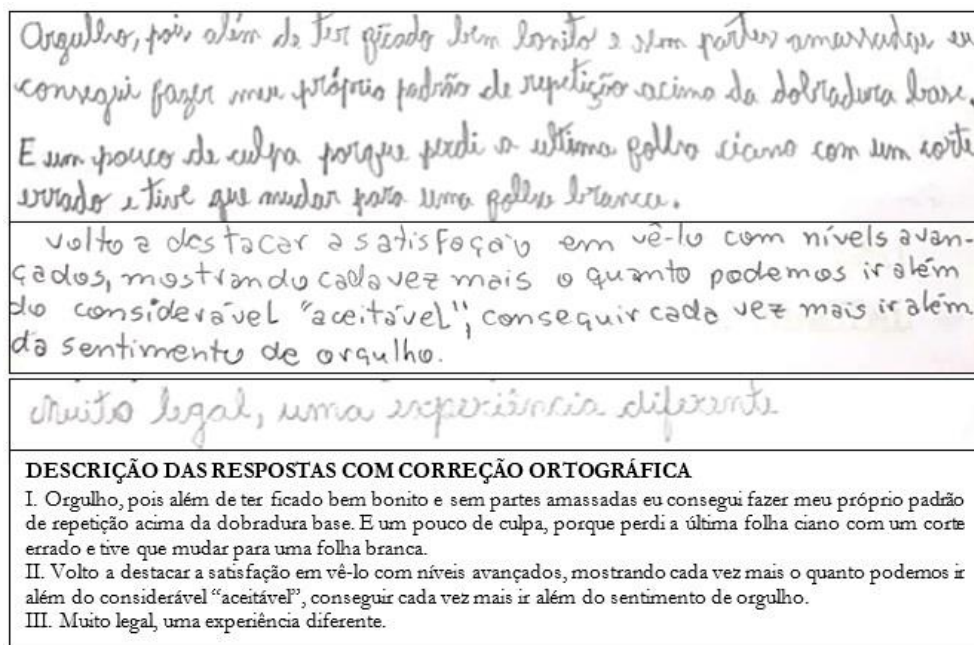 Orgulho, pois além de ter ficado bem bonito e sem partes amassadas eu
consegui fazer meu próprio padrão de repetição acima da dobradura base.
E um pouco de culpa porque perdi a ultima folha ciano com um corte
errado e tive que mudar para uma folha branca.
volto a destacar a satisfação em vê-lo com nívels avan-
çados, mostrando cada vez mais o quanto podemos ir além
do considerável "aceitável", conseguir cada vez mais ir além
do sentimento de orgulho.
Muito legal, uma experiência diferente
DESCRIÇÃO DAS RESPOSTAS COM CORREÇÃO ORTOGRÁFICA
I. Orgulho, pois além de ter ficado bem bonito e sem partes amassadas eu consegui fazer meu próprio padrão
de repetição acima da dobradura base. E um pouco de culpa, porque perdi a última folha ciano com um corte
errado e tive que mudar para uma folha branca.
II. Volto a destacar a satisfação em vê-lo com níveis avançados, mostrando cada vez mais o quanto podemos ir
além do considerável “aceitável”, conseguir cada vez mais ir além do sentimento de orgulho.
III. Muito legal, uma experiência diferente.